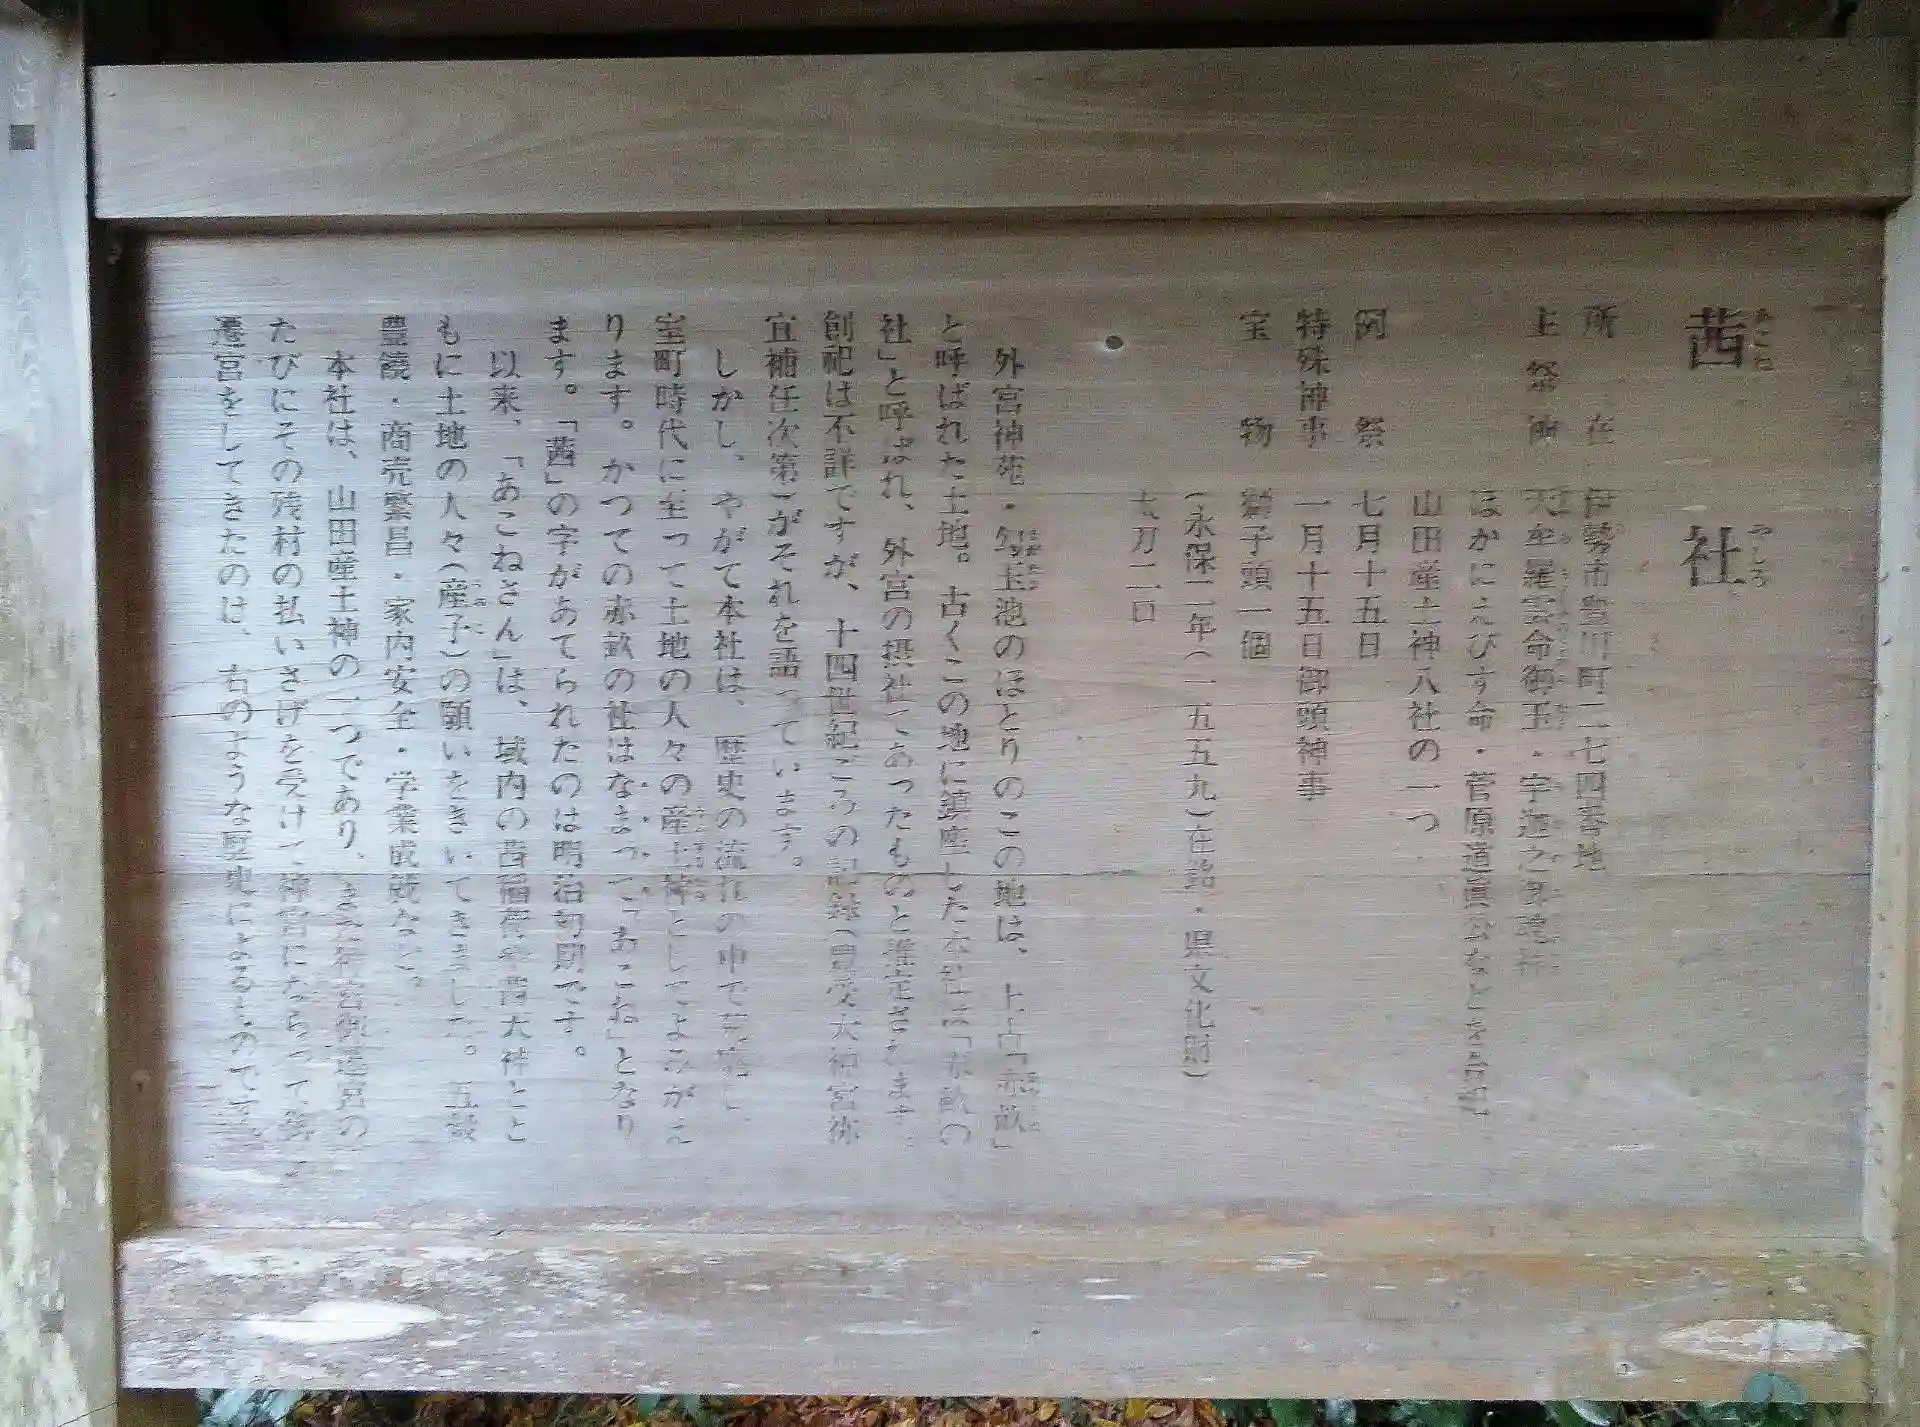 茜社
あこね やしろ
所在 伊勢市豊川町二七四番地
主祭神 天牟羅雲命御玉・宇迦之御魂神
ほかにえびす命・菅原道真公などを配祀
山田産土神八社の一つ
例祭 七月十五日
特殊神事 一月十五日御頭神事
宝物 獅子頭一個
(永保二年(一五五九)在銘・県文化財)
太刀二口
外宮神苑・勾玉池のほとりのこの地は、上古「赤畝」
と呼ばれた土地。古くこの地に鎮座した本社は「赤畝の
社」と呼ばれ、外宮の摂社であったものと推定されます。
創祀は不詳ですが、十四世紀ごろの記録(豊受大神宮祢
宜補任次第)がそれを語っています。
しかし、やがて本社は、歴史の流れの中で荒廃し、
室町時代に至って土地の人々の産土神としてよみがえ
ります。かつての赤畝の社はなまって「あこね」となり
ます。「茜」の字があてられたのは明治初期です。
以来、「あこねさん」は、域内の茜稲荷や茜天神とと
もに土地の人々(産子)の願いをきいてきました。五穀
豊饒・商売繁昌・家内安全・学業成就など。
本社は、山田産土神の一つであり、
たびにその残材の払いさげを受けて神宮にならって
遷宮をしてきたのは、右のような歴史によるものです